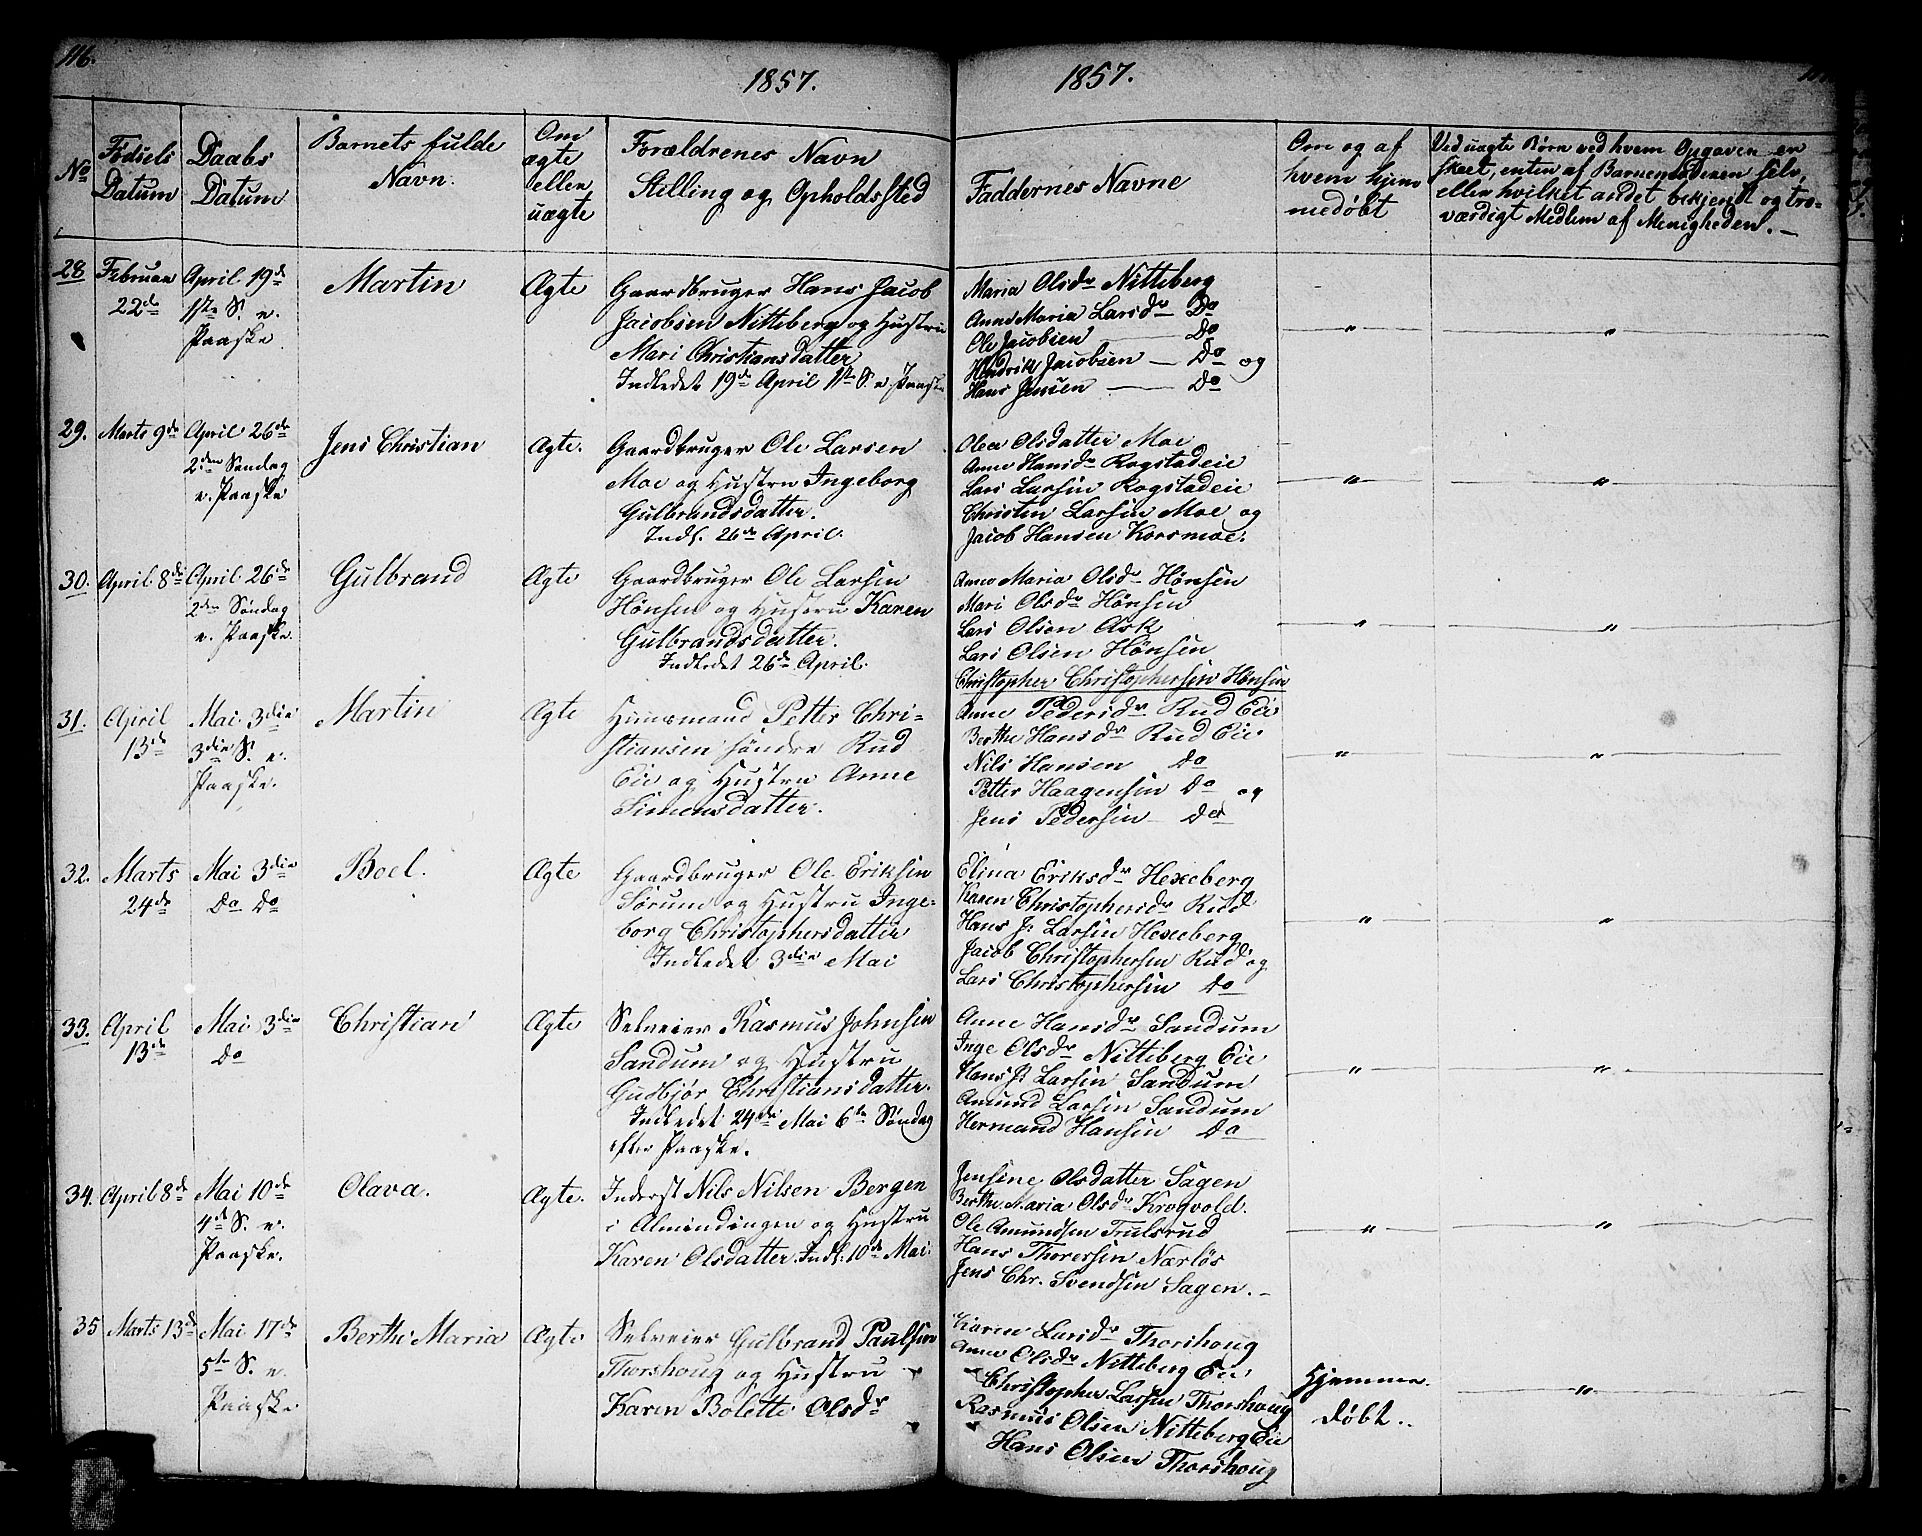 116.
1857.
1857.
No
Fødsels
Datum
Daabs
Datum
Barnets fulde
Navn.
Om
ægte
eller
uægte
Forældrenes Navn
Stilling og Opholdssted
Faddernes Navne
Om og af
hvem hjem-
medøbt
Ved uægte Børn ved hvem Opgaven er
skeet, enten af Barnemoderen selv,
eller hvilket andet bekjendt og tro-
værdigt Medlem af Menigheden. —
28
Februar
22de
April 19de
1ste S. e.
Paaske
Martin
Ægte
Gaardbruger Hans Jacob
Jacobsen Nitteberg og Hustru
Mari Christiansdatter
Indledet 19de April 1ste S. e. Paaske
Maria Olsdr Nitteberg
Anne Maria Larsdr Do
Ole Jacobsen — Do
Hendrik Jacobsen — Do og
Hans Jensen — Do
"
"
29.
Marts 9de
April 26de
2den Søndag
e. Paaske
Jens Christian
Ægte.
Gaardbruger Ole Larsen
Moe og Hustru Ingeborg
Gulbrandsdatter.
Indl. 26de April.
Olea Olsdatter Moe
Anne Hansdr Rogstadeie
Lars Larsen Rogstadeie
Christen Larsen Moe og
Jacob Hansen Korsmoe.
"
"
30.
April 8de
April 26de
2den Søndag
e. Paaske.
Gulbrand
Ægte
Gaardbruger Ole Larsen
Hønsen og Hustru Karen
Gulbrandsdatter.
Indledet 26de April.
Anne Maria Olsdr Hønsen
Mari Olsdr Hønsen
Lars Olsen Ask
Lars Olsen Hønsen
Christopher Christophersen Hønsen
"
"
31.
April
13de
Mai 3die
3die S. e.
Paaske.
Martin
Ægte
Huusmand Petter Chri-
stiansen søndre Rud
Eie og Hustru Anne
Simensdatter.
Anne Pedersdr Rud Eie
Berthe Hansdr Rud Eie
Nils Hansen Do
Petter Haagensen Do og
Jens Pedersen — Do
"
"
32.
Marts
24de
Mai 3die
Do Do
Boel.
Ægte
Gaardbruger Ole Eriksen
Sørum og Hustru Inge-
borg Christophersdatter
Indledet 3die Mai
Elina Eriksdr Hexeberg
Karen Christophersdr Rud
Hans J. Larsen Hexeberg
Jacob Christophersen Rud og
Lars Christophersen Do
"
"
33.
April
13de
Mai 3die
Do
Christian
Ægte
Selveier Rasmus Johnsen
Sandum og Hustru
Gudbjør Christiansdatter.
Indledet 24de Mai 6te Søndag
efter Paaske.
Anne Hansdr Sandum
Inge Olsdr Nitteberg Eie
Hans J. Larsen Sandum
Amund Larsen Sandum
Hermand Hansen Do
"
"
34.
April 8de
Mai 10de
4de S. e.
Paaske.
Olava.
Ægte.
Inderst Nils Nilsen Bergen
i Almindingen og Hustru
Karen Olsdatter. Indl. 10de Mai.
Jensine Olsdatter Sagen
Berthe Maria Olsdr Krogvold.
Ole Amundsen Trulsrud
Hans Thoresen Nærløs
Jens Chr. Svendsen Sagen. —
"
"
35
Marts 13de
Mai 17de
5te S. e.
Paaske
Berthe Maria
Ægte
Selveier Gulbrand Paulsen
Thorshoug og Hustru
Karen Bolette Olsdr
Karen Larsdr Thorshoug
Anne Olsdr Nitteberg Eie
Christopher Larsen Thorshoug
Rasmus Olsen Nitteberg Eie
Hans Olsen Thorshoug
Hjemme
døbt..
"